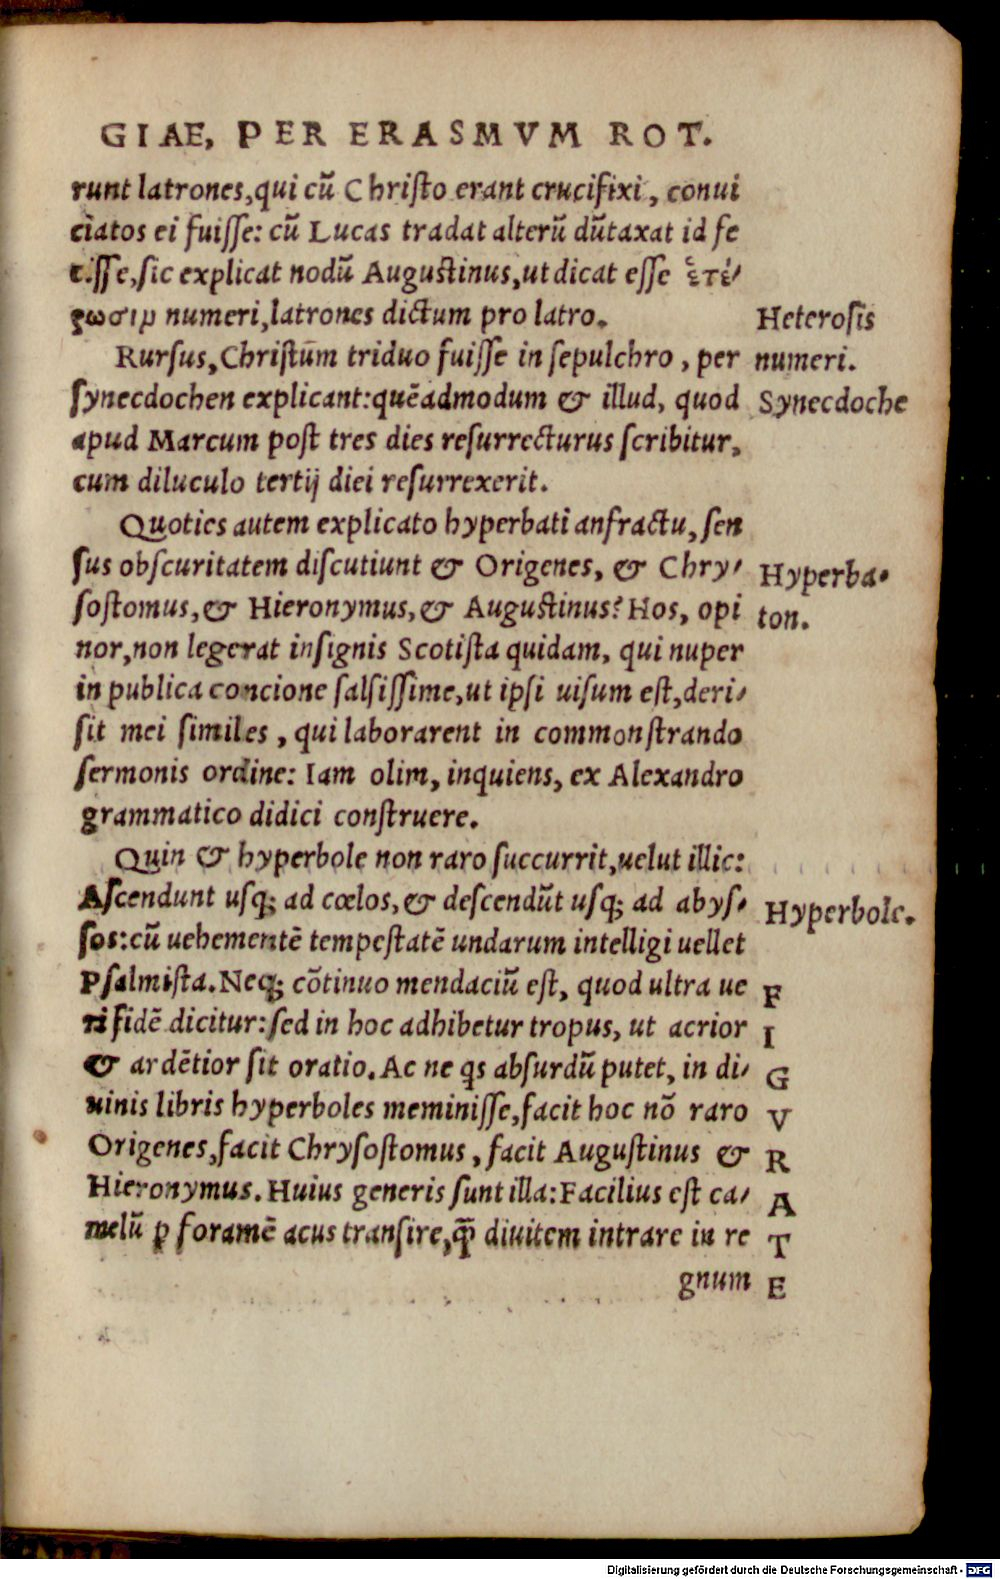 GIAE, PER ERASMVM ROT.
runt latrones, qui cū Christo erant crucifixi, conui
ciatos ei fuisse: cū Lucas tradat alterū dūtaxat id fe
cisse, sic explicat nodū Augustinus, ut dicat esse ἑτέ-
ρωσιν numeri, latrones dictum pro latro.
Heterosis
numeri.
Rursus, Christum triduo fuisse in sepulchro, per
synecdochen explicant: quēadmodum & illud, quod
Synecdoche
apud Marcum post tres dies resurrecturus scribitur,
cum diluculo tertij diei resurrexerit.
Quoties autem explicato hyperbati anfractu, sen
sus obscuritatem discutiunt & Origenes, & Chry-
Hyperba-
ton.
sostomus, & Hieronymus, & Augustinus? Hos, opi
nor, non legerat insignis Scotista quidam, qui nuper
in publica concione salsissime, ut ipsi uisum est, deri-
sit mei similes, qui laborarent in commonstrando
sermonis ordine: Iam olim, inquiens, ex Alexandro
grammatico didici construere.
Quin & hyperbole non raro succurrit, uelut illic:
Ascendunt usq; ad cœlos, & descendūt usq; ad abys-
Hyperbole.
sos: cū uehementē tempestatē undarum intelligi uellet
Psalmista. Neq; cōtinuo mendaciū est, quod ultra ue
ri fidē dicitur: sed in hoc adhibetur tropus, ut acrior
& ardētior sit oratio. Ac ne qs absurdū putet, in di-
uinis libris hyperboles meminisse, facit hoc nō raro
Origenes, facit Chrysostomus, facit Augustinus &
Hieronymus. Huius generis sunt illa: Facilius est ca-
melū ꝑ foramē acus transire, q̄ diuitem intrare in re
gnum
F
I
G
V
R
A
T
E
Digitalisierung gefördert durch die Deutsche Forschungsgemeinschaft - DFG